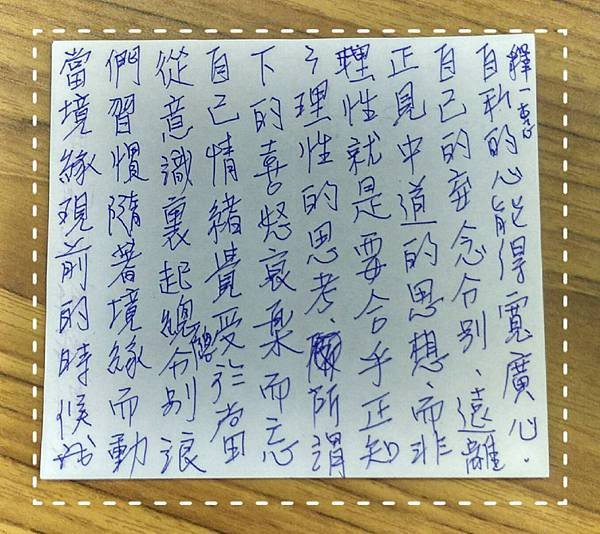 當境緣現前的時候我
們習慣隨著境緣而動
從意識裏起總分別浪
自己情緒覺受於當
下的喜怒哀樂而忘
了理性的思考、所謂
理性就是要合乎正知
正見中道的思想、而非
自己的妄念分別、遠離
自私的心能得寬廣心.
釋一